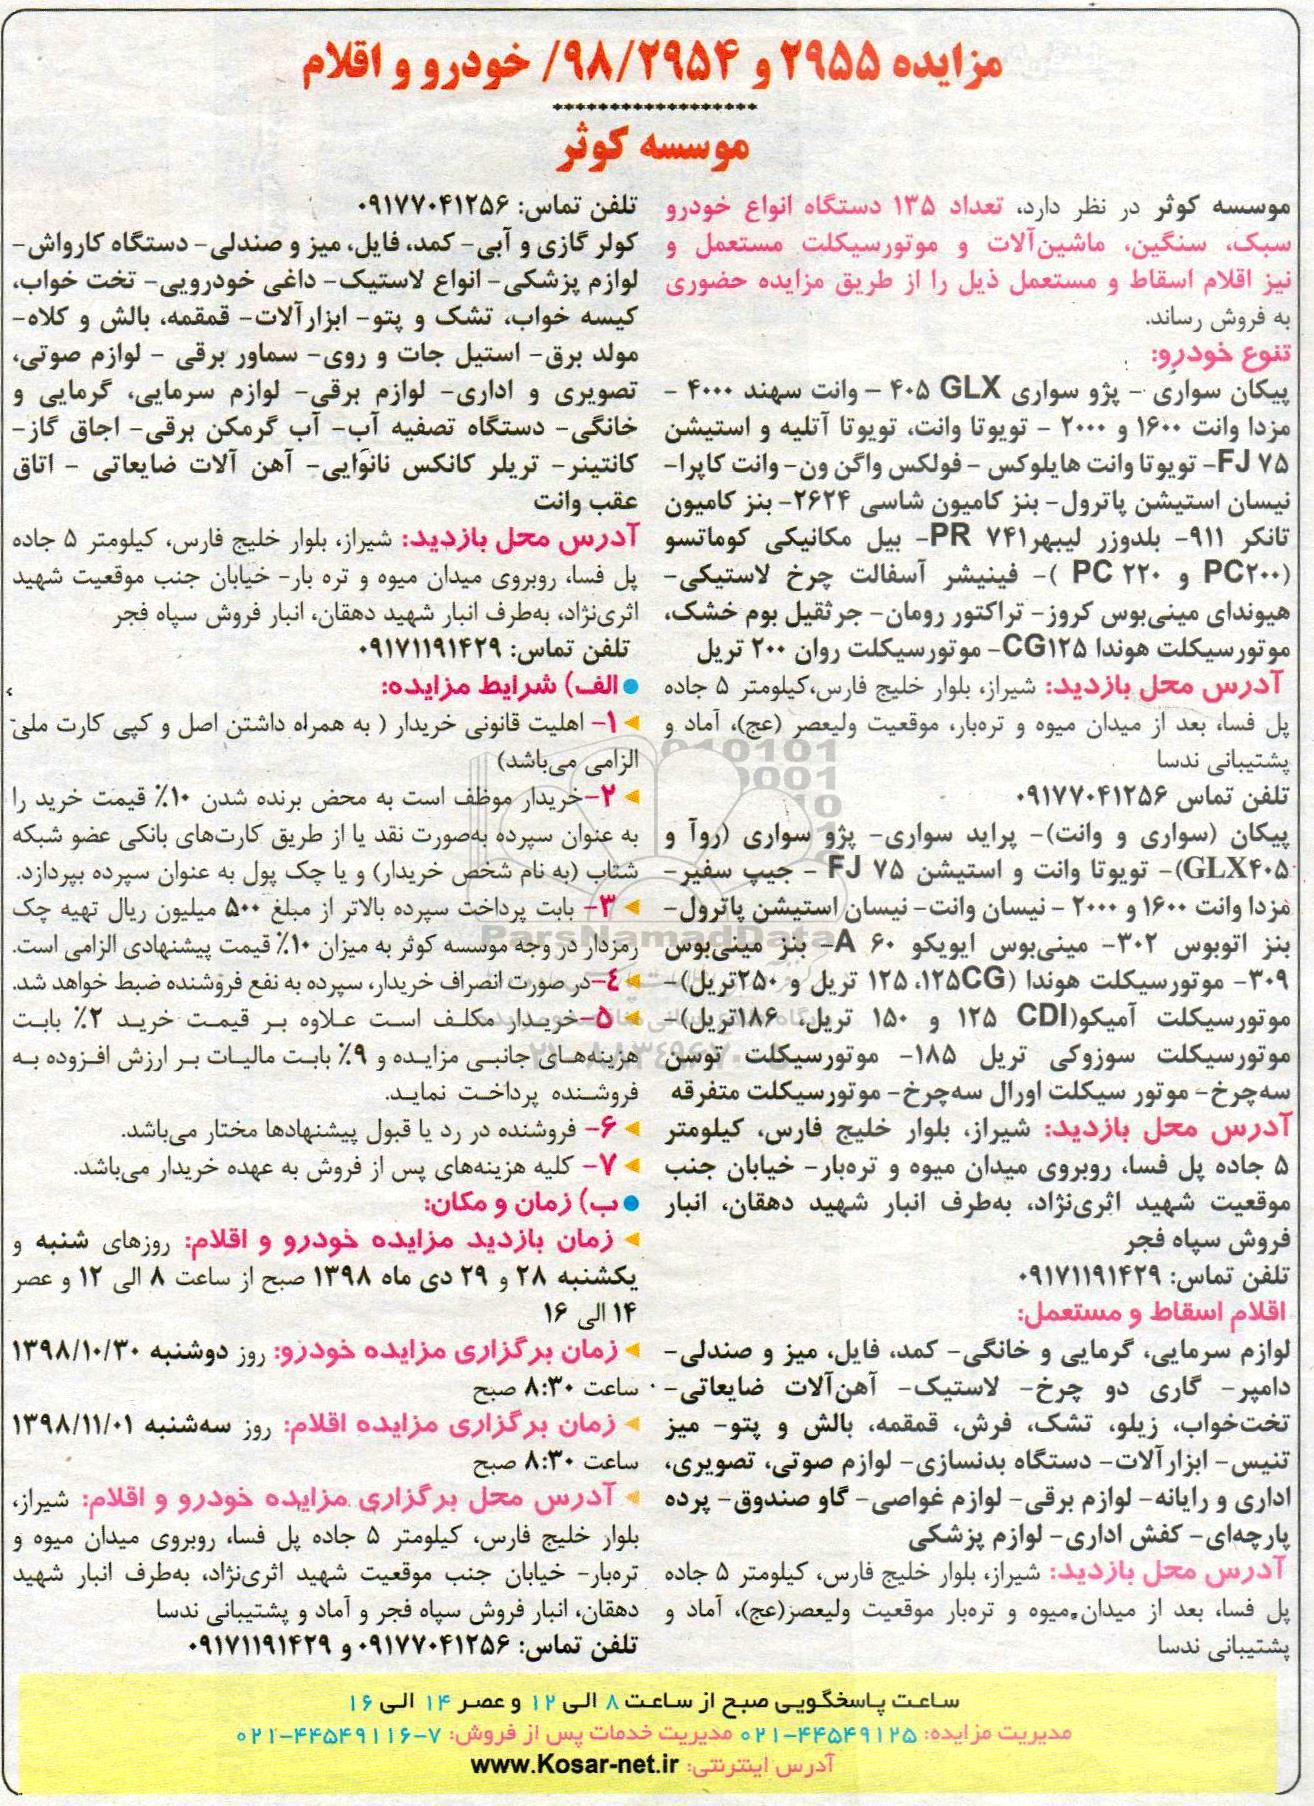 مزایده ۲۹۵۵ و ۹۸/۲۹۵۴/ خودرو و اقلام
موسسه کوثر
موسسه کوثر در نظر دارد، تعداد ۱۳۵ دستگاه انواع خودرو
سبک، سنگین، ماشین‌آلات و موتورسیکلت مستعمل و
نیز اقلام اسقاط و مستعمل ذیل را از طریق مزایده حضوری
به فروش رساند.
تنوع خودرو:
پیکان سواری - پژو سواری ۴۰۵ GLX - وانت سهند ۴۰۰۰ -
مزدا وانت ۱۶۰۰ و ۲۰۰۰ - تویوتا وانت، تویوتا آتلیه و استیشن
FJ ۷۵- تویوتا وانت هایلوکس - فولکس واگن ون- وانت کاپرا-
نیسان استیشن پاترول- بنز کامیون شاسی ۲۶۲۴- بنز کامیون
تانکر ۹۱۱- بلدوزر لیبهر۷۴۱ PR- بیل مکانیکی کوماتسو
(PC۲۰۰ و PC ۲۲۰ )- فینیشر آسفالت چرخ لاستیکی-
هیوندای مینی‌بوس کروز- تراکتور رومان- جرثقیل بوم خشک،
موتورسیکلت هوندا CG۱۲۵- موتورسیکلت روان ۲۰۰ تریل
آدرس محل بازدید: شیراز، بلوار خلیج فارس،کیلومتر ۵ جاده
پل فسا، بعد از میدان میوه و تره‌بار، موقعیت ولیعصر (عج)، آماد و
پشتیبانی ندسا
تلفن تماس ۰۹۱۷۷۰۴۱۲۵۶
پیکان (سواری و وانت)- پراید سواری- پژو سواری (روآ و
GLX۴۰۵)- تویوتا وانت و استیشن ۷۵ FJ - جیپ سفیر-
مزدا وانت ۱۶۰۰ و ۲۰۰۰ - نیسان وانت- نیسان استیشن پاترول-
بنز اتوبوس ۳۰۲- مینی‌بوس ایویکو ۶۰ A- بنز مینی‌بوس
۳۰۹- موتورسیکلت هوندا (۱۲۵CG، ۱۲۵ تریل و ۲۵۰تریل)-
موتورسیکلت آمیکو(CDI ۱۲۵ و ۱۵۰ تریل، ۱۸۶تریل)-
موتورسیکلت سوزوکی تریل ۱۸۵- موتورسیکلت توسن
سه‌چرخ- موتور سیکلت اورال سه‌چرخ- موتورسیکلت متفرقه
آدرس محل بازدید: شیراز، بلوار خلیج فارس، کیلومتر
۵ جاده پل فسا، روبروی میدان میوه و تره‌بار- خیابان جنب
موقعیت شهید اثری‌نژاد، به‌طرف انبار شهید دهقان، انبار
فروش سپاه فجر
تلفن تماس: ۰۹۱۷۱۱۹۱۴۲۹
اقلام اسقاط و مستعمل:
لوازم سرمایی، گرمایی و خانگی- کمد، فایل، میز و صندلی-
دامپر- گاری دو چرخ- لاستیک- آهن‌آلات ضایعاتی-
تخت‌خواب، زیلو، تشک، فرش، قمقمه، بالش و پتو- میز
تنیس- ابزارآلات- دستگاه بدنسازی- لوازم صوتی، تصویری،
اداری و رایانه- لوازم برقی- لوازم غواصی- گاو صندوق- پرده
پارچه‌ای- کفش اداری- لوازم پزشکی
آدرس محل بازدید: شیراز، بلوار خلیج فارس، کیلومتر ۵ جاده
پل فسا، بعد از میدان میوه و تره‌بار موقعیت ولیعصر(عج)، آماد و
پشتیبانی ندسا
تلفن تماس: ۰۹۱۷۷۰۴۱۲۵۶
کولر گازی و آبی- کمد، فایل، میز و صندلی- دستگاه کارواش-
لوازم پزشکی- انواع لاستیک- داغی خودرویی- تخت خواب،
کیسه خواب، تشک و پتو- ابزارآلات- قمقمه، بالش و کلاه-
مولد برق- استیل جات و روی- سماور برقی - لوازم صوتی،
تصویری و اداری- لوازم برقی- لوازم سرمایی، گرمایی و
خانگی- دستگاه تصفیه آب- آب گرمکن برقی- اجاق گاز-
کانتینر- تریلر کانکس نانوایی- آهن آلات ضایعاتی - اتاق
عقب وانت
آدرس محل بازدید: شیراز، بلوار خلیج فارس، کیلومتر ۵ جاده
پل فسا، روبروی میدان میوه و تره بار- خیابان جنب موقعیت شهید
اثری‌نژاد، به‌طرف انبار شهید دهقان، انبار فروش سپاه فجر
تلفن تماس: ۰۹۱۷۱۱۹۱۴۲۹
الف) شرایط مزایده:
۱- اهلیت قانونی خریدار ( به همراه داشتن اصل و کپی کارت ملی
الزامی می‌باشد)
۲-خریدار موظف است به محض برنده شدن ۱۰٪ قیمت خرید را
به عنوان سپرده به‌صورت نقد یا از طریق کارت‌های بانکی عضو شبکه
شتاب (به نام شخص خریدار) و یا چک پول به عنوان سپرده بپردازد.
۳- بابت پرداخت سپرده بالاتر از مبلغ ۵۰۰ میلیون ریال تهیه چک
رمزدار در وجه موسسه کوثر به میزان ۱۰٪ قیمت پیشنهادی الزامی است.
۴-در صورت انصراف خریدار، سپرده به نفع فروشنده ضبط خواهد شد.
۵-خریدار مکلف است علاوه بر قیمت خرید ۲٪ بابت
هزینه‌های جانبی مزایده و ۹٪ بابت مالیات بر ارزش افزوده به
فروشنده پرداخت نماید.
۶- فروشنده در رد یا قبول پیشنهادها مختار می‌باشد.
۷- کلیه هزینه‌های پس از فروش به عهده خریدار می‌باشد.
ب) زمان و مکان:
زمان بازدید مزایده خودرو و اقلام: روزهای شنبه و
یکشنبه ۲۸ و ۲۹ دی ماه ۱۳۹۸ صبح از ساعت ۸ الی ۱۲ و عصر
۱۴ الی ۱۶
زمان برگزاری مزایده خودرو: روز دوشنبه ۱۳۹۸/۱۰/۳۰
ساعت ۸:۳۰ صبح
زمان برگزاری مزایده اقلام: روز سه‌شنبه ۱۳۹۸/۱۱/۰۱
ساعت ۸:۳۰ صبح
آدرس محل برگزاری مزایده خودرو و اقلام: شیراز،
بلوار خلیج فارس، کیلومتر ۵ جاده پل فسا، روبروی میدان میوه و
تره‌بار- خیابان جنب موقعیت شهید اثری‌نژاد، به‌طرف انبار شهید
دهقان، انبار فروش سپاه فجر و آماد و پشتیبانی ندسا
تلفن تماس: ۰۹۱۷۷۰۴۱۲۵۶ و ۰۹۱۷۱۱۹۱۴۲۹
ساعت پاسخگویی صبح از ساعت ۸ الی ۱۲ و عصر ۱۴ الی ۱۶
مدیریت مزایده: ۰۲۱-۴۴۵۴۹۱۲۵ مدیریت خدمات پس از فروش: ۷-۰۲۱-۴۴۵۴۹۱۱۶
آدرس اینترنتی: www.Kosar-net.ir
ParsNamadData